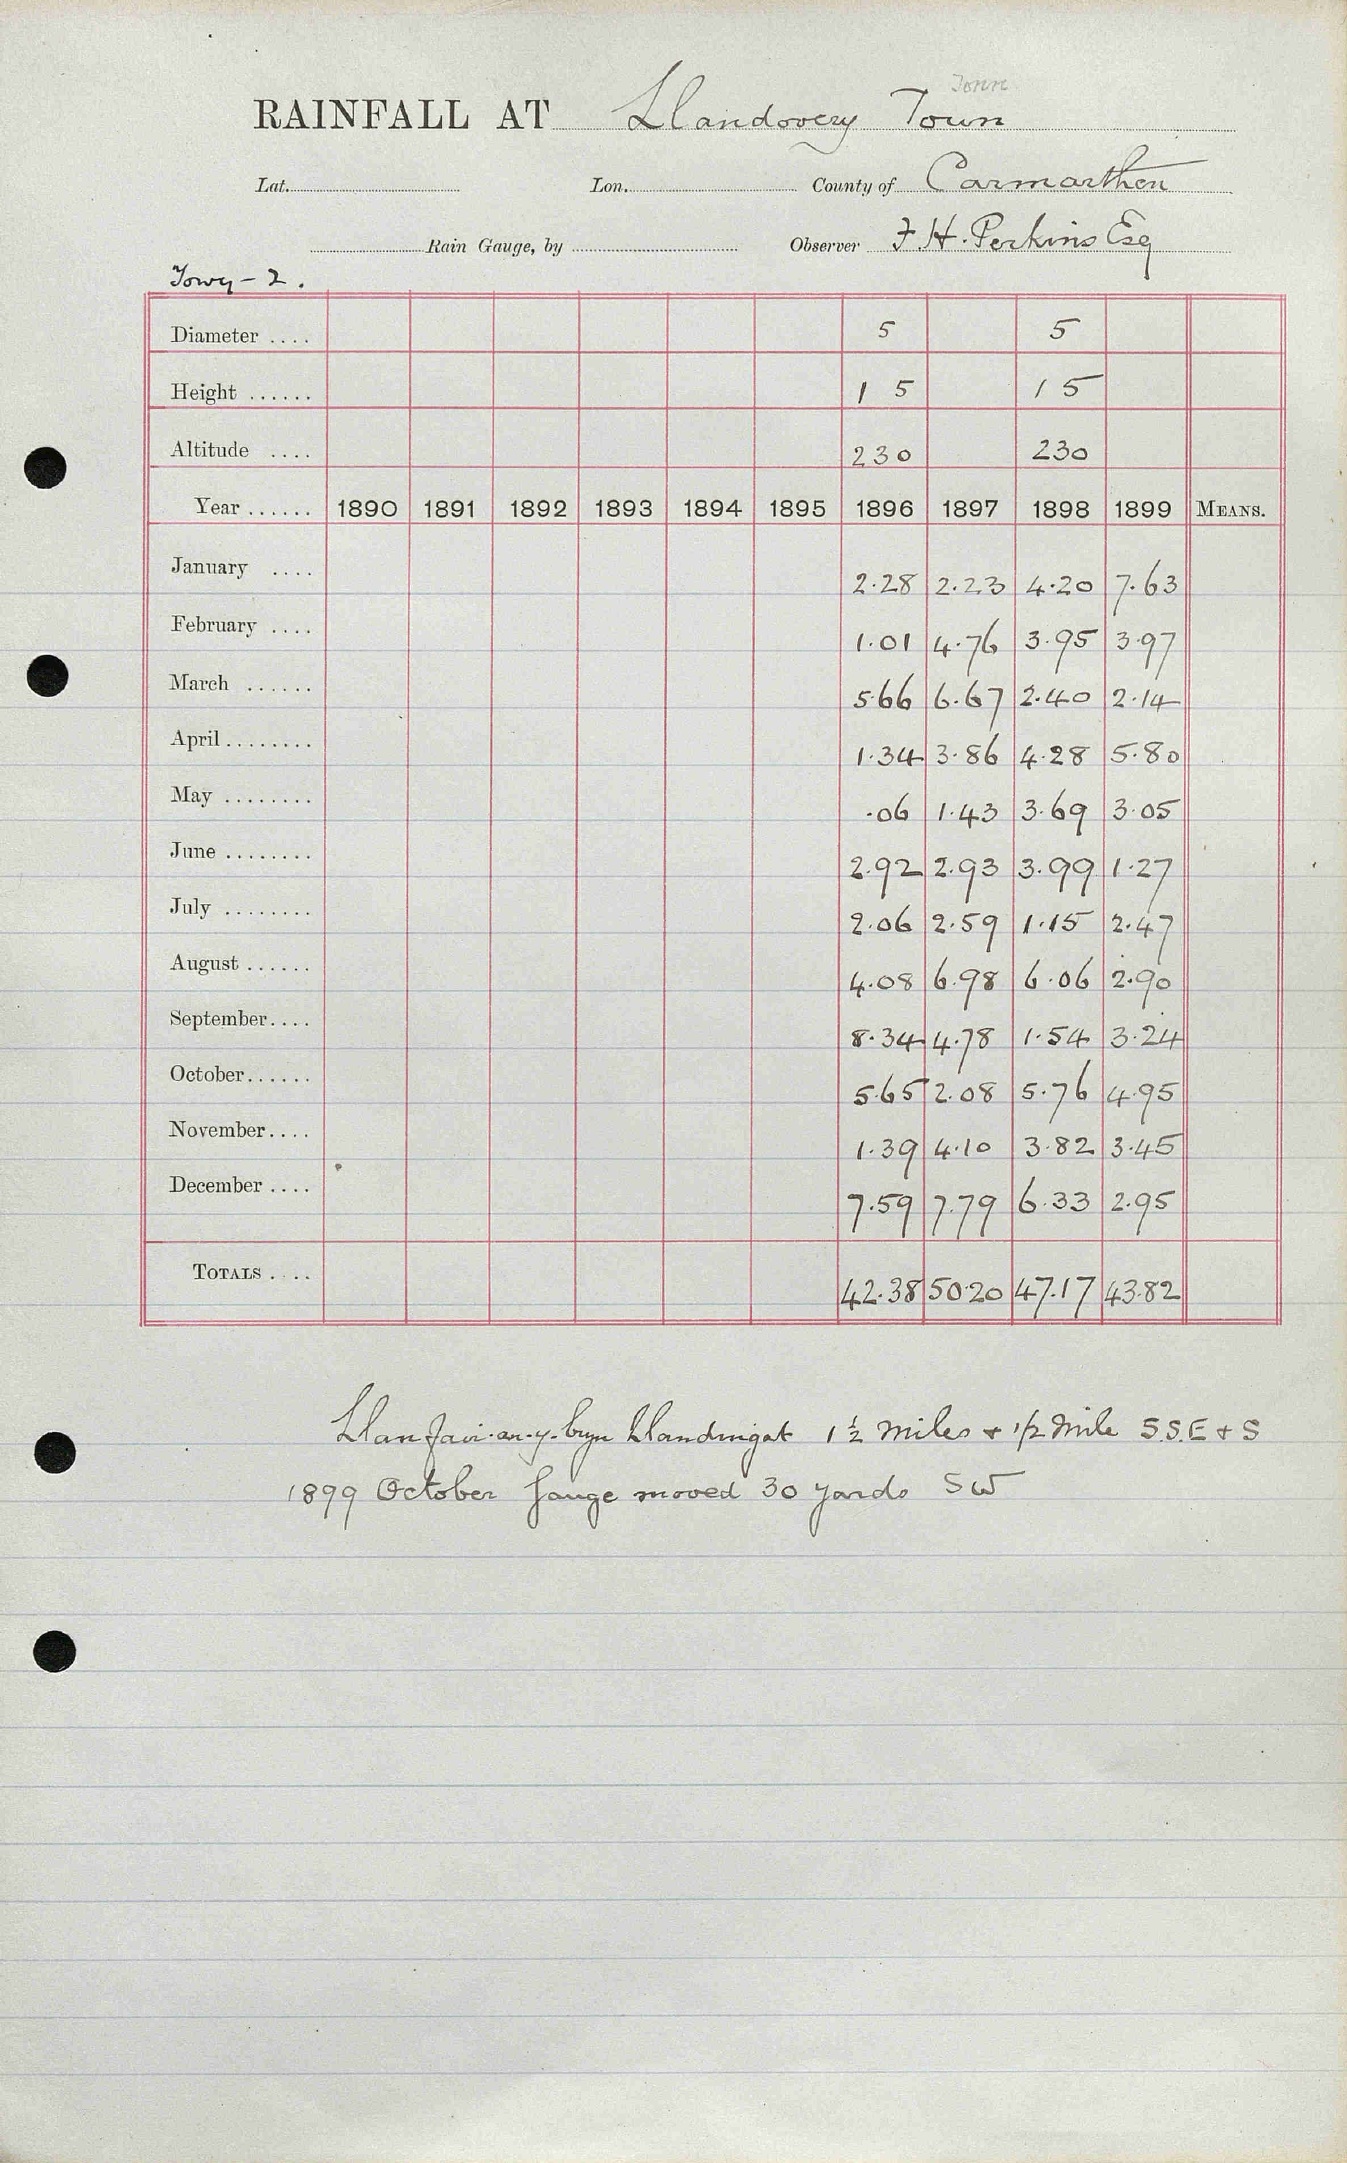 Tonn
RAINFALL AT Llandovery Town
Lat. Lon. County of Carmarthen
Rain Gauge, by Observer F H. Perkins Esq
Towy - 2.
Diameter .... 5 5
Height ...... 1 5 1 5
Altitude .... 230 230
Year ...... 1890 1891 1892 1893 1894 1895 1896 1897 1898 1899 MEANS.
January .... 2.28 2.23 4.20 7.63
February .... 1.01 4.76 3.95 3.97
March ...... 5.66 6.67 2.40 2.14
April ........ 1.34 3.86 4.28 5.80
May ........ .06 1.43 3.69 3.05
June ........ 2.92 2.93 3.99 1.27
July ........ 2.06 2.59 1.15 2.47
August ...... 4.08 6.98 6.06 2.90
September.... 8.34 4.78 1.54 3.24
October...... 5.65 2.08 5.76 4.95
November.... 1.39 4.10 3.82 3.45
December .... 7.59 7.79 6.33 2.95
TOTALS .... 42.38 50.20 47.17 43.82
Llanfair-ar-y-bryn Llandingat 1 1/2 miles + 1/2 mile S.S.E + S
1899 October gauge moved 30 yards SW